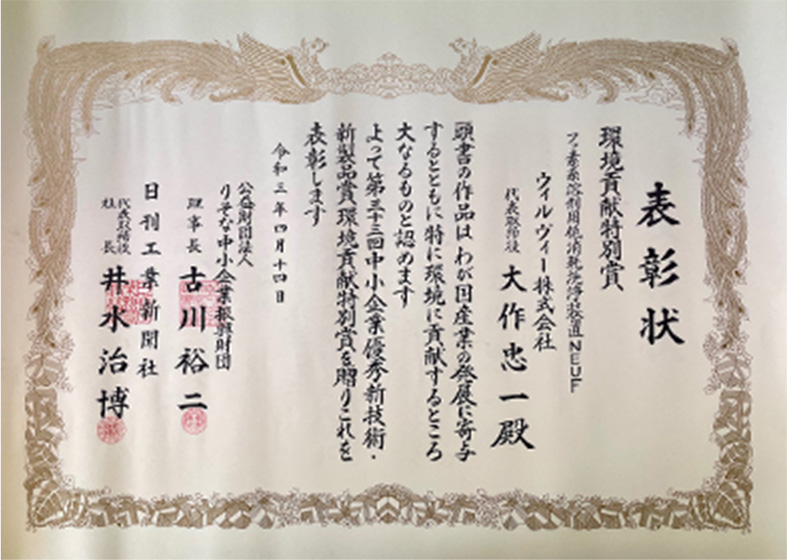 表彰状
環境貢献特別賞
フッ素系溶剤用低消耗洗浄装置NEUF
ウィルヴィー株式会社
代表取締役 大作忠一殿
頭書の作品はわが国産業の発展に寄与
するとともに特に環境に貢献するところ
大なるものと認めます
よって第三十三回中小企業優秀新技術・
新製品賞環境貢献特別賞を贈りこれを
表彰します
令和三年四月十四日
公益財団法人
りそな中小企業振興財団
理事長 古川裕二
日刊工業新聞社
代表取締役
社長 井水治博